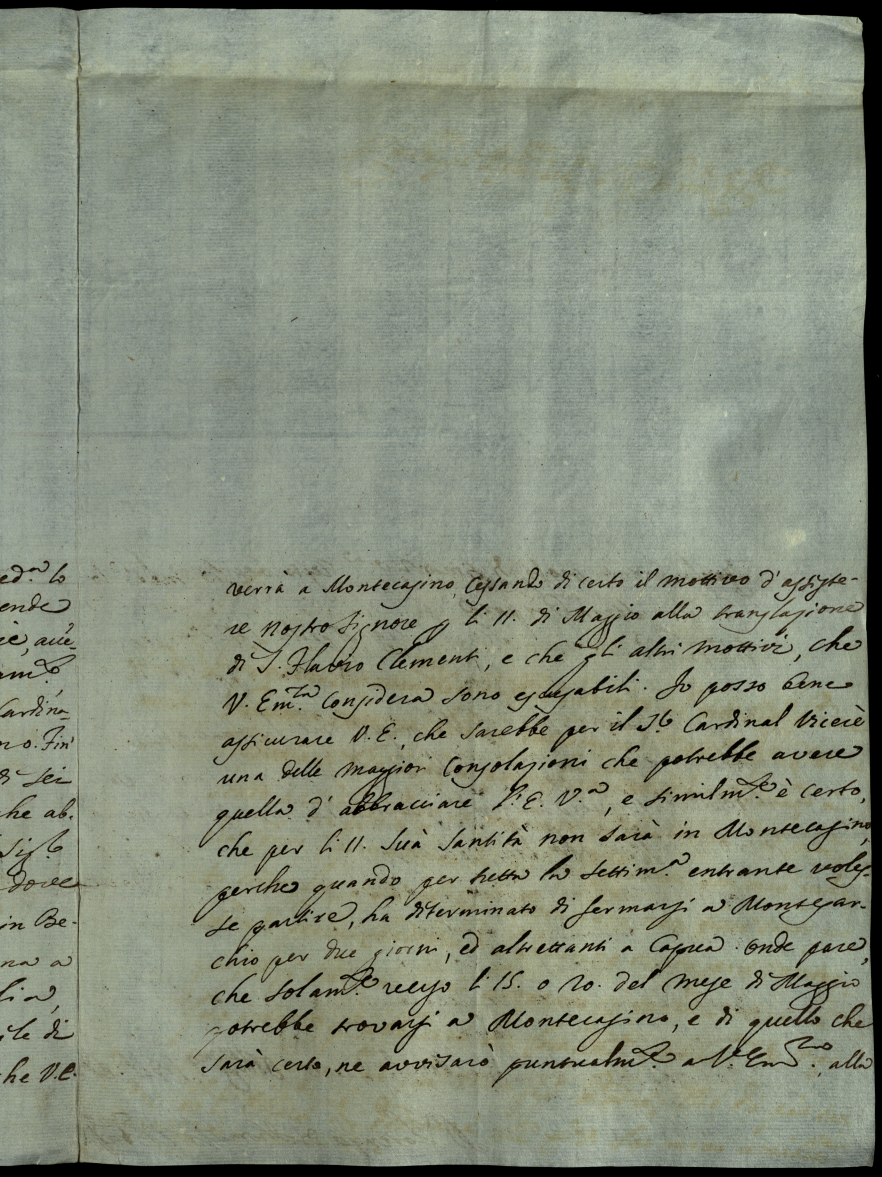 ed.ᵃ lo
ende
iè, avè-
am.ᵗᵉ
Cardina-
no. Fin
di sei
che ab-
Sig.ʳᵉ
dove
in Be-
na a
lia,
ile di
he V.E.
verrà a Montecasino, Cessando di certo il mottivo d'assiste-
re nostro Signore p li 11. di Maggio alla translazione
di S. Flavio Clement, e che gli altri mottivi, che
V. Em.ᶻᵃ Considera sono escusabili. Io posso bene
assicurare V.E., che sarebbe per il Sᵉ Cardinal Vicerè
una delle maggiori Consolazioni che potrebbe avere
quella d'abbracciare l'E. V.ᵃ, e similm.ᵗᵉ è certo,
che per li 11. Suà Santità non sarà in Montecasino,
perche quando per tutta la settim.ᵃ entrante voles-
se partire, ha diterminato di fermarsi a Montesar-
chio per due giorni, ed altrettanti a Capua onde pare,
che solam.ᵗᵉ verso li 15. o 20. del mese di Maggio
potrebbe trovarsi a Montecasino, e di quello che
sarà certo, ne avvisarò puntualm.ᵗᵉ a V. Em.ᶻᵃ, alla